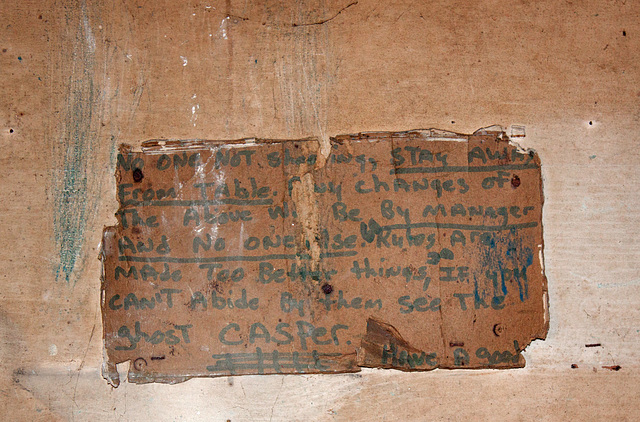 NO ONE NOT shooting, STAY Away
From Table. Any changes of
The Above Will Be By MANAGER
And No one else Rules Are
MADe Too Better things, IF you
CAN'T Abide By Them see The
ghost CASPER.
Have A good